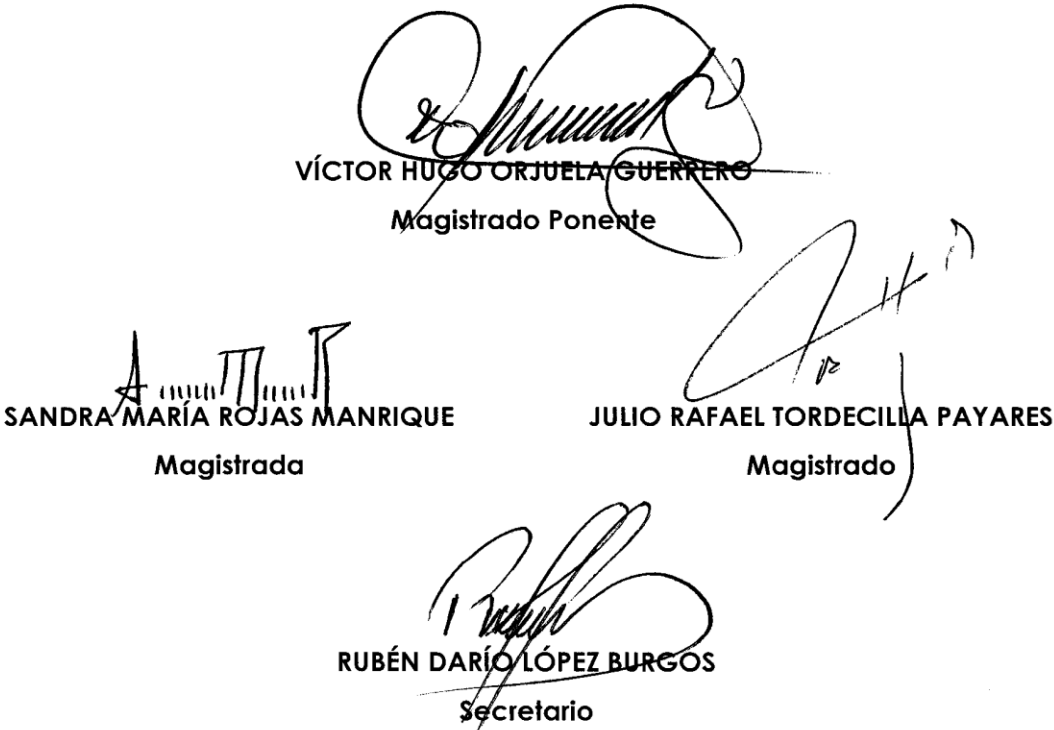 VÍCTOR HUGO ORJUELA GUERRERO
Magistrado Ponente
SANDRA MARÍA ROJAS MANRIQUE
JULIO RAFAEL TORDECILLA PAYARES
Magistrada
Magistrado
RUBÉN DARÍO LÓPEZ BURGOS
Secretario